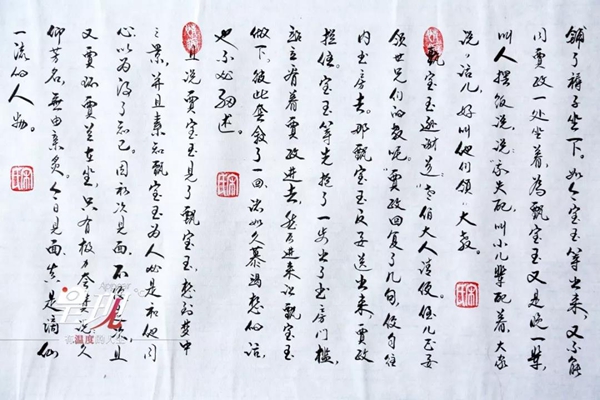 铺了褥子坐下。如今宝玉等出来,又不能
同贾政一处坐着,为甄宝玉又是晚一辈,
叫人摆饭,说,说“我失配,叫小儿辈配着,大家
说,话儿,好叫他们领”大教。
甄宝玉逊谢道:“老伯大人请便。侄儿正要
领世兄们的教呢。”贾政回复了几句,便自往
内书房去。那甄宝玉反要送出来,贾政
拦住。宝玉等先抢了一步出了书房门槛,
站立看着贾政进去,然后进来让甄宝玉
做下。彼此套叙了一回,诸如久慕竭想的话,
也不必细述。
且说贾宝玉见了甄宝玉,想到梦中
之景,并且素知甄宝玉为人必是和他同
心,以为得了知己。因初次见面,不便造次。且
又贾环贾兰在坐,只有极力夸赞说久
仰芳名,无由亲炙。今日见面,真是谪仙
一流的人物。
温度的人